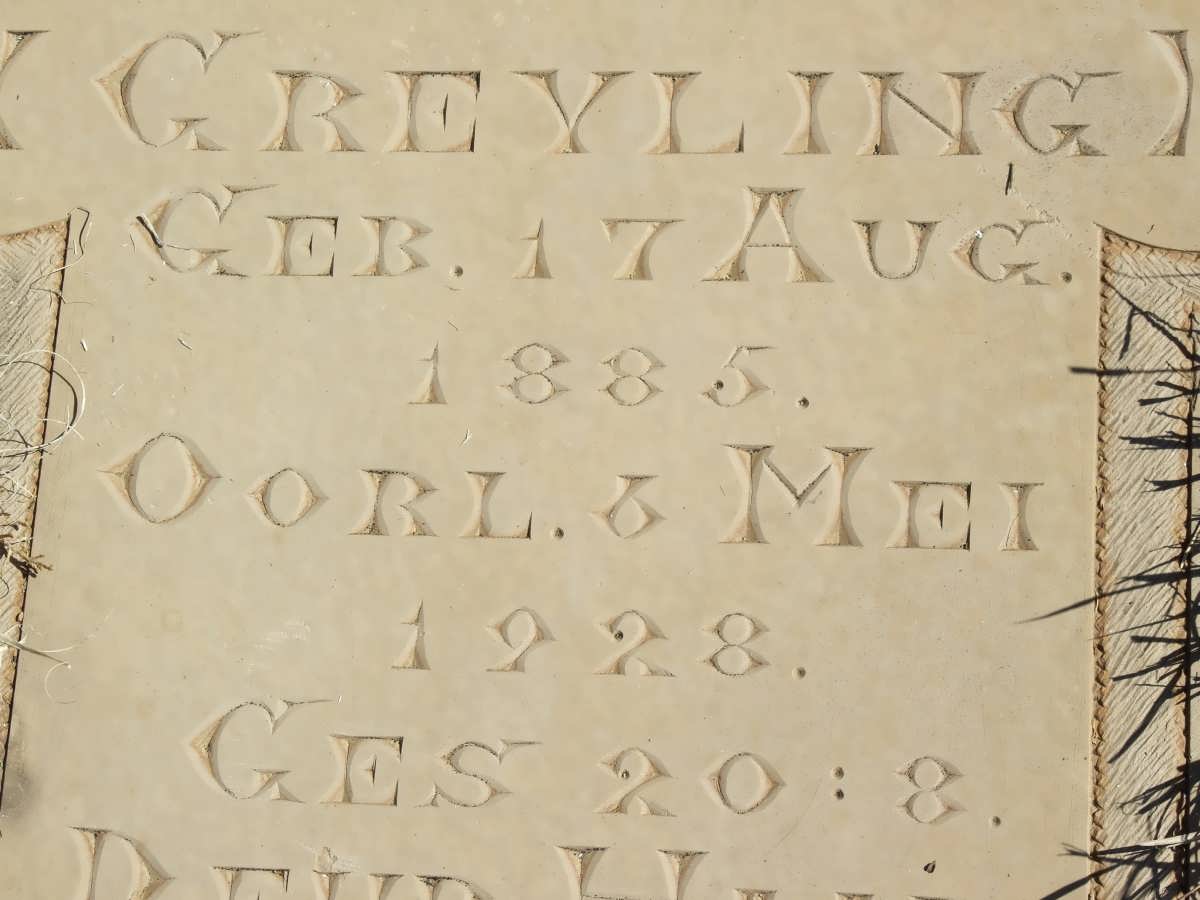 (GREYLING)
GEB. 17 AUG.
1885.
OORL. 6 MEI
1928.
GES 20:8.